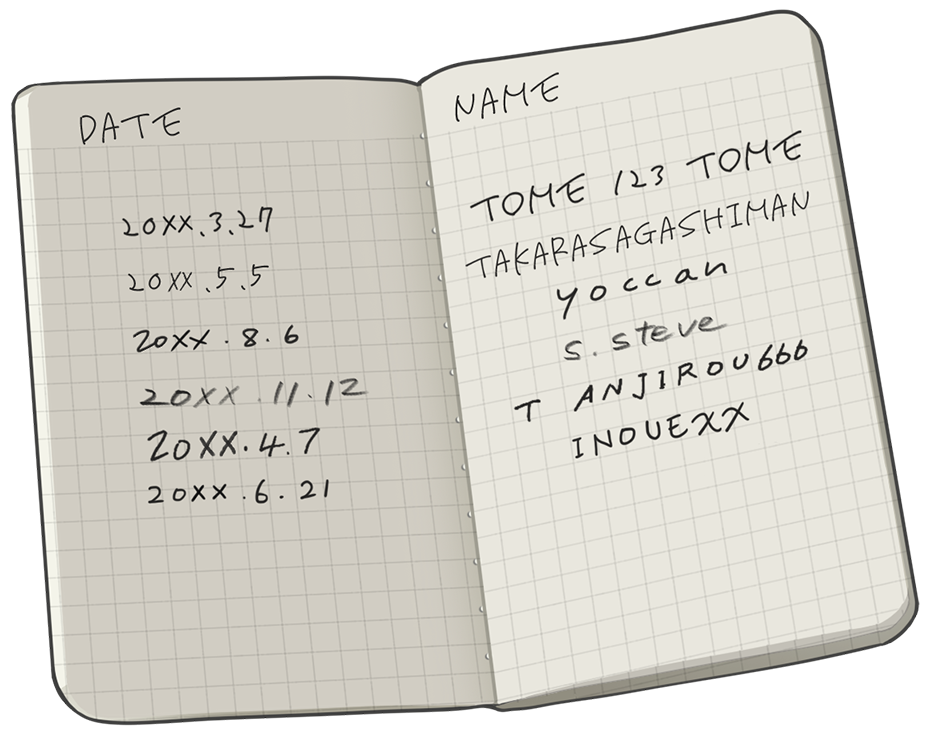 DATE
20XX.3.27
20XX.5.5
20XX.8.6
20XX.11.12
20XX.4.7
20XX.6.21
NAME
TOME 123 TOME
TAKARASAGASHIMAN
yoccan
s.steve
T ANJIROU666
INOUEXX